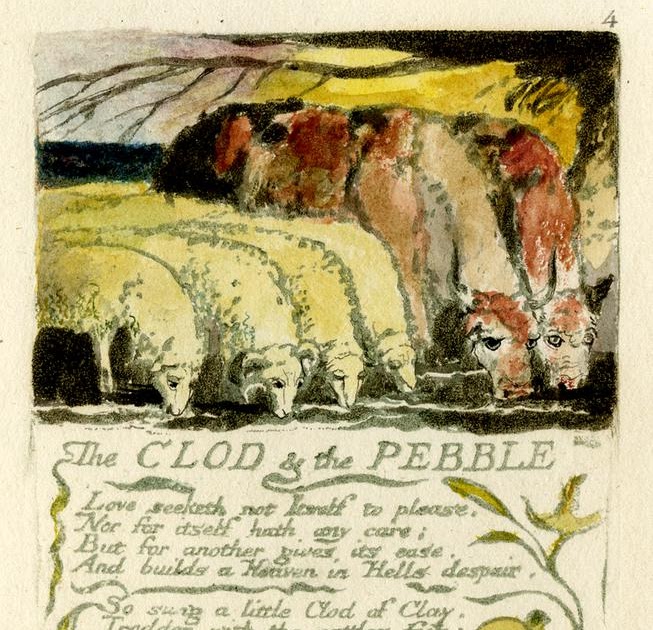 4
The CLOD & the PEBBLE
Love seeketh not Itself to please.
Nor for itself hath any care;
But for another gives its ease.
And builds a Heaven in Hells despair.
So sung a little Clod of Clay.
Trodden with the cattles feet: